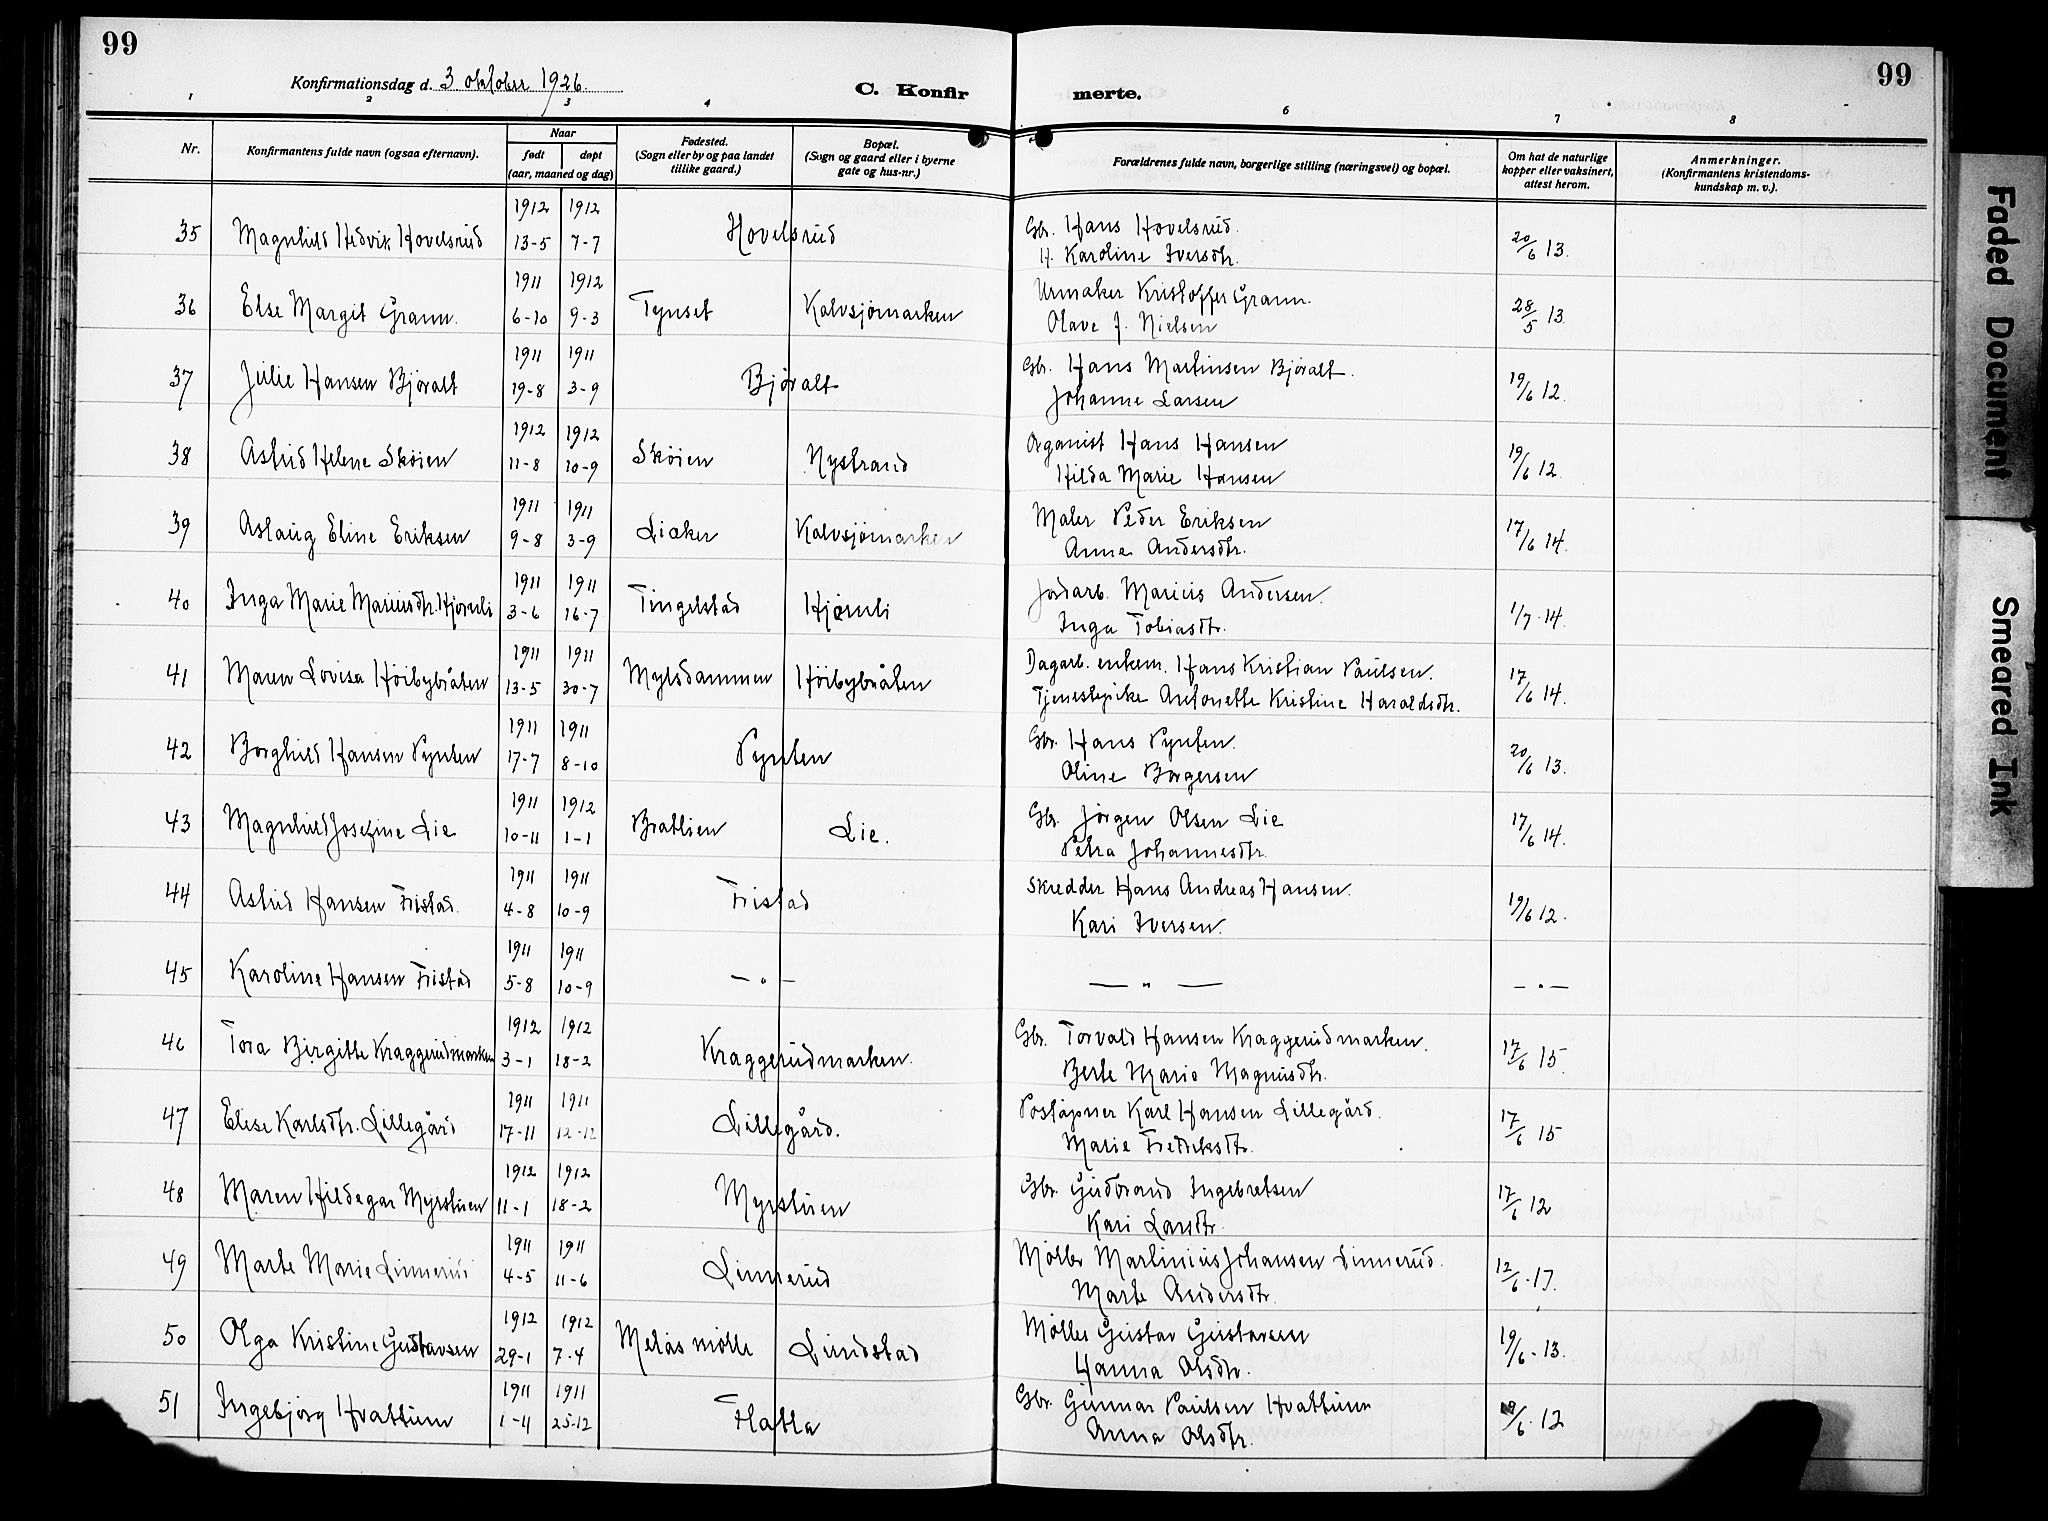 99
99
Konfirmationsdag d. 3 oktober 1926.
C. Konfirmerte.
1 2 3 4 6 7 8
Nr.
Konfirmantens fulde navn (ogsaa efternavn).
Naar
født døpt
(aar, maaned og dag)
Fødested.
(Sogn eller by og paa landet
tillike gaard.)
Bopæl.
(Sogn og gaard eller i byerne
gate og hus-nr.)
Forældrenes fulde navn, borgerlige stilling (næringsvei) og bopæl.
Om hat de naturlige
kopper eller vaksinert,
attest herom.
Anmerkninger.
(Konfirmantens kristendoms-
kundskap m. v.).
1912 1912
35 Magnhild Hedvik Hovelsrud 13-5 7-7 Hovelsrud Gbr. Hans Hovelsrud. 20/6 13.
H. Karoline Iversdtr.
1911 1912
36 Else Margit Grann. 6-10 9-3 Tynset Kalvsjømarken Urmaker Kristoffer Grann. 28/5 13.
Olave J. Nielsen
1911 1911
37 Julie Hansen Bjøralt 19-8 3-9 Bjøralt Gbr. Hans Martinsen Bjøralt. 19/6 12.
Johanne Larsen
1912 1912
38 Astrid Helene Skøien 11-8 10-9 Skøien Nystrand Organist Hans Hansen 19/6 12.
Hilda Marie Hansen
1911 1911
39 Aslaug Eline Eriksen 9-8 3-9 Liaker Kalvsjømarken Maler Peder Eriksen 17/6 14.
Anne Andersdtr.
1911 1911
40 Inga Marie Mariusdtr. Hjørnli 3-6 16-7 Tingelstad Hjørnli Jordarb. Marius Andersen. 1/7 14.
Inga Tobiasdtr.
1911 1911
41 Maren Lovisa Höibybråten 13-5 30-7 Mylsdammen Höibybråten Dagarb. enkem. Hans Kristian Paulsen. 17/6 14.
Tjenestepike Antonette Kristine Haraldsdtr.
1911 1911
42 Borghild Hansen Pynten 17-7 8-10 Pynten Gbr. Hans Pynten. 20/6 13.
Oline Borgersen
1911 1912
43 Magnhild Josefine Lie 10-11 1-1 Brattlien Lie. Gbr. Jörgen Olsen Lie 17/6 14.
Petra Johannesdtr.
1911 1911
44 Astrid Hansen Fristad. 4-8 10-9 Fristad Skredder Hans Andreas Hansen. 19/6 12.
Kari Iversen.
1911 1911
45 Karoline Hansen Fristad 5-8 10-9 — " — — " — — " —
1912 1912
46 Tora Birgitte Kraggerudmarken 3-1 18-2 Kraggerudmarken. Gbr. Torvald Hansen Kraggerudmarken. 17/6 15.
Berte Marie Magnusdtr.
1911 1911
47 Elise Karlsdtr. Lillegård 17-11 12-12 Lillegård. Poståpner Karl Hansen Lillegård. 17/6 15
Marie Fredriksdtr.
1912 1912
48 Maren Hildegar Myrstuen 11-1 18-2 Myrstuen Gbr. Gudbrand Ingebretsen 17/6 12
Kari Larsdtr.
1911 1911
49 Marte Marie Linnerud 4-5 11-6 Linnerud Møller Martinius Johansen Linnerud. 12/6-17.
Marte Andersdtr.
1912 1912
50 Olga Kristine Gustavsen 29-1 7-4 Melås mølle Lundstad Møller Gustav Gustavsen 19/6-13.
Hanna Olsdtr.
1911 1911
51 Ingebjørg Hvattum 1-4 25-12 Flatla Gbr. Gunnar Paulsen Hvattum 19/6-12
Anna Olsdtr.
Faded Document
Smeared Ink